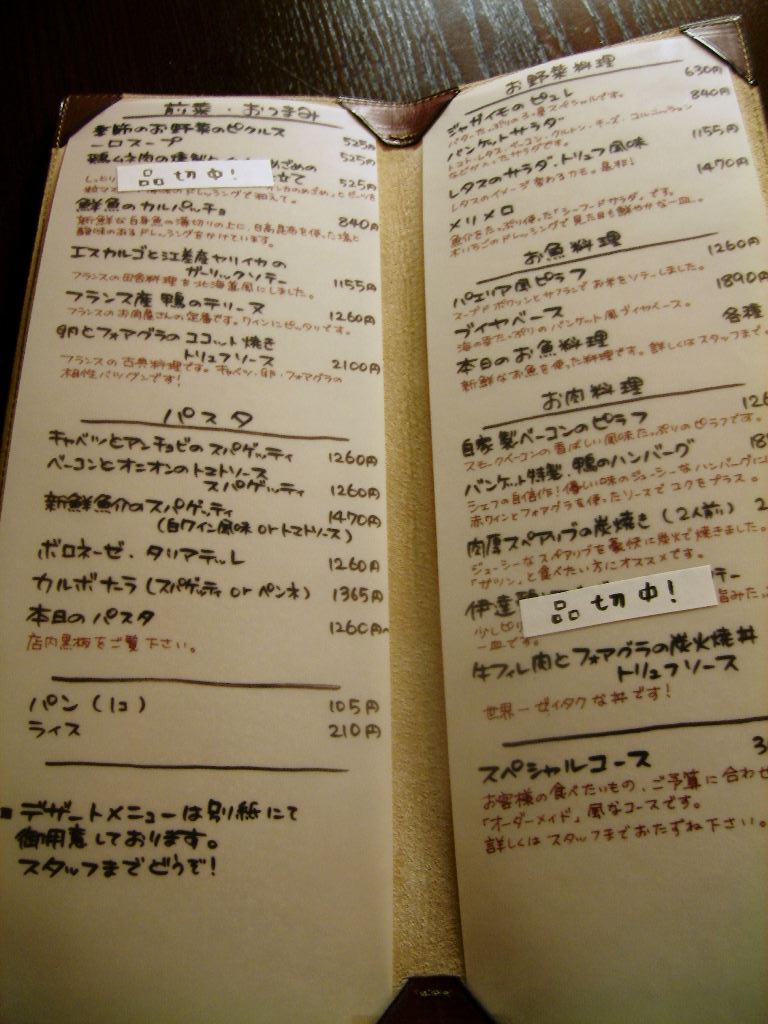 前菜・おつまみ
季節のお野菜のピクルス 525円
一口スープ 525円
鶏ムネ肉の燻製
品切中！
立て 525円
鮮魚のカルパッチョ 840円
新鮮な白身魚の薄切りの上に、日高昆布を使った塩と
酸味のあるドレッシングをかけています。
エスカルゴと江差産ヤリイカの
ガーリックソテー 1155円
フランスの田舎料理を北海道風にしました。
フランス産 鴨のテリーヌ 1260円
フランスのお肉屋さんの定番です。ワインにピッタリです。
卵とフォアグラのココット焼き
トリュフソース 2100円
フランスの古典料理です。キャベツ・卵・フォアグラの
相性バツグンです！
パスタ
キャベツとアンチョビのスパゲッティ 1260円
ベーコンとオニオンのトマトソース
スパゲッティ 1260円
新鮮魚介のスパゲッティ 1470円
（白ワイン風味 or トマトソース）
ボロネーゼ、タリアテッレ 1260円
カルボナーラ（スパゲッティ or ペンネ） 1365円
本日のパスタ 1260円〜
店内黒板をご覧下さい。
パン（1コ） 105円
ライス 210円
デザートメニューは別紙にて
御用意しております。
スタッフまでどうぞ！
お野菜料理
ジャガイモのピュレ 630円
バターたっぷりの
スペシャルです。
バンケットサラダー 840円
トマト、レタス、ベーコン、クルトン、チーズ、コルニッション
などが入ったサラダです。
レタスのサラダ、トリュフ風味 1155円
レタスのイメージ変わるカモ。是非！
メリメロ 1470円
魚介をたっぷり使った"シーフードサラダ"です。
木いちごのドレッシングで見た目も鮮やかな一皿。
お魚料理
パエリア風ピラフ 1260円
スープドポワソンとサフランでお米をソテーしました。
ブイヤベース 1890円
海の幸たっぷりのバンケット風ブイヤベース。
本日のお魚料理 各種
新鮮なお魚を使った料理です。詳しくはスタッフまで。
お肉料理
自家製ベーコンのピラフ 126
スモークベーコンの香ばしい風味たっぷりのピラフです。
バンケット特製、鴨のハンバーグ 18
シェフの自信作！優しい味のジューシーなハンバーグに
赤ワインとフォアグラを使ったソースでコクをプラス。
肉厚スペアリブの炭焼き（2人前） 2
ジューシーなスペアリブを豪快に炭火で焼きました。
「ガツン」と食べたい方にオススメです。
伊達
品切中！
テー
少しピリ
旨みた
一皿です。
牛フィレ肉とフォアグラの炭火焼丼
トリュフソース
世界一ゼイタクな丼です！
スペシャルコース 3
お客様の食べたいもの、ご予算に合わせ
「オーダーメイド」風なコースです。
詳しくはスタッフまでおたずね下さい。